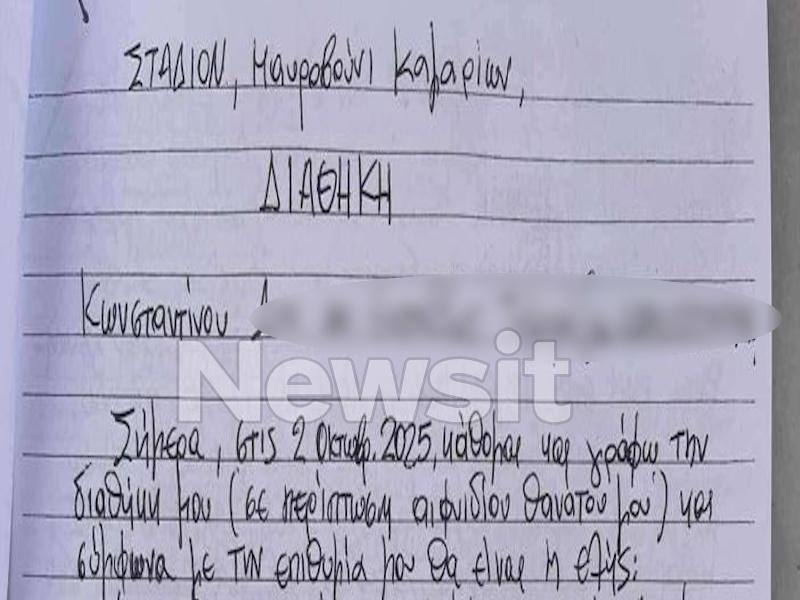 ΣΤΑΔΙΟΝ, Μαυροβούνι Καβαρίων,
ΔΙΑΘΗΚΗ
Κωνσταντίνου
Newsit
Σήμερα, στις 2 Οκτωβρ. 2025, κάθομαι και γράφω την
διαθήκη μου (σε περίπτωση αιφνιδίου θανάτου μου) και
σύμφωνα με την επιθυμία μου θα είναι η εξής: